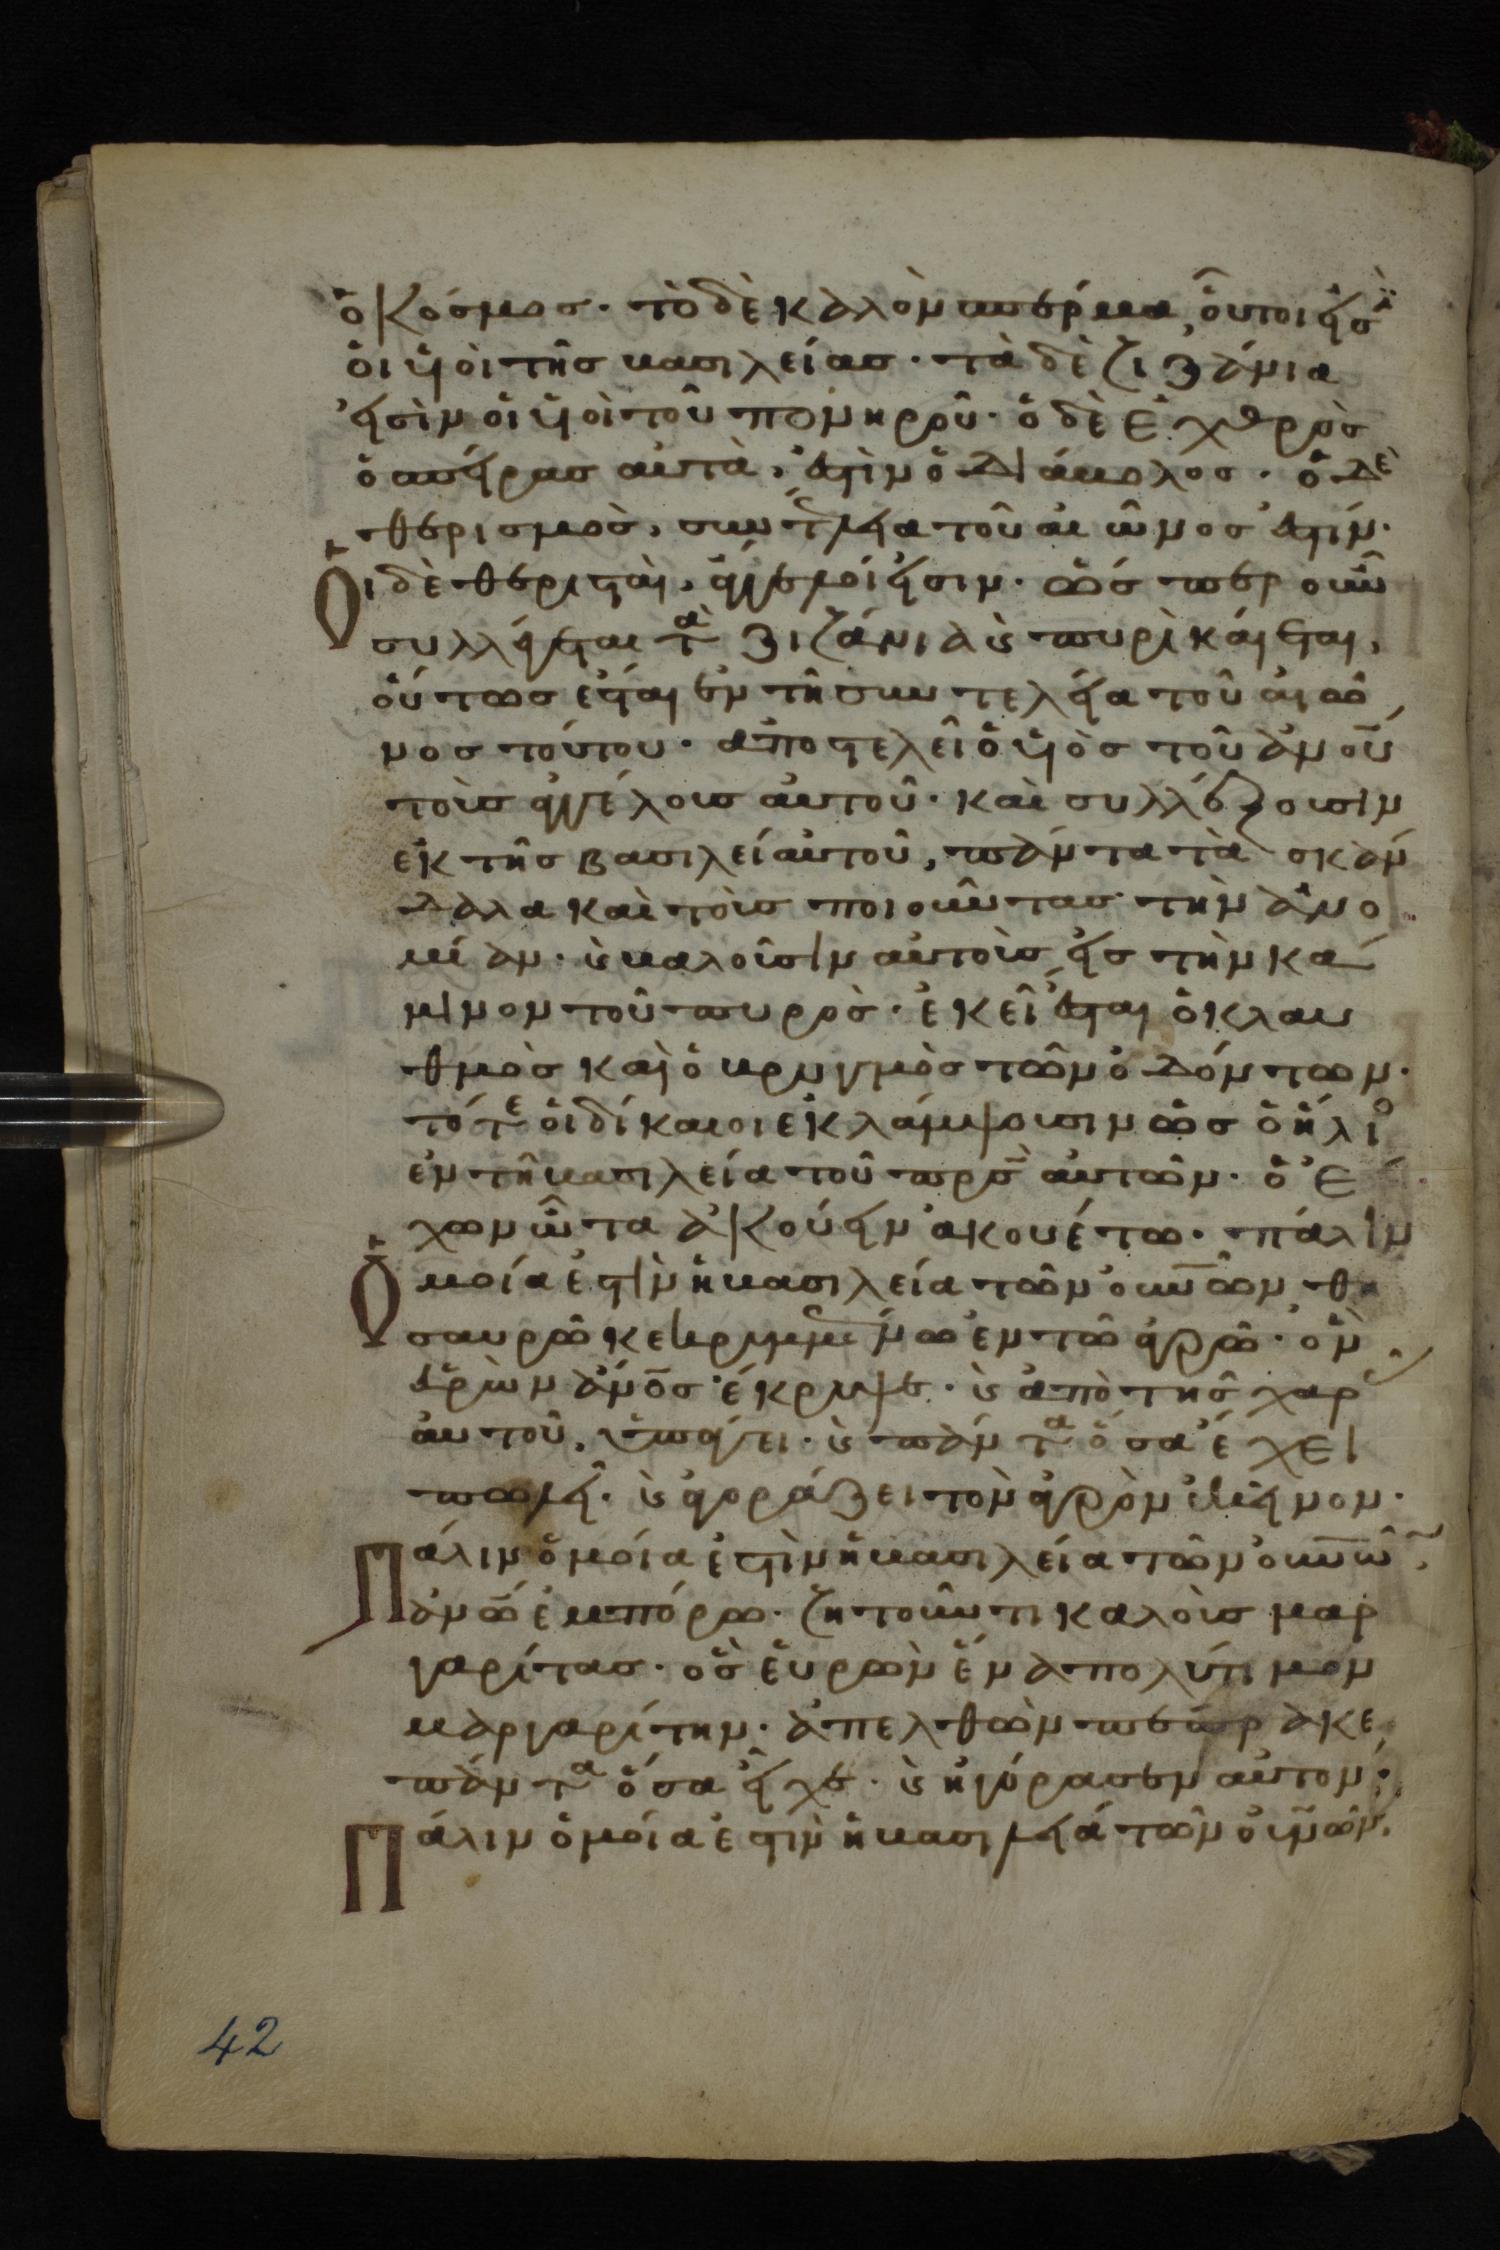 ὁ κόσμος· τὸ δὲ καλὸν σπέρμα, οὗτοι εἰσϊ
οἱ υἱοὶ τῆς βασιλείας· τὰ δὲ ζιζάνια
εἰσὶν οἱ υἱοὶ τοῦ πονηροῦ· ὁ δὲ ἐχθρὸς
ὁ σπείρας αὐτὰ, ἐστὶν ὁ διάβολος· ὁ δὲ
θερισμὸς, συντέλεια τοῦ αἰῶνος ἐστίν·
Οἱ δὲ θερισταὶ, ἄγγελοί εἰσιν· ὥσπερ οὖν
συλλέγεται τὰ ζιζάνια καὶ πυρὶ καίεται,
οὕτως ἔσται ἐν τῆ συντελεία τοῦ αἰῶ
νος τούτου· ἀποστελεῖ ὁ υἱὸς τοῦ ἀνου
τοὺς ἀγγέλους αὐτοῦ· καὶ συλλέξουσιν
ἐκ τῆς βασιλεί αὐτοῦ, πάντα τὰ σκάν
δαλα καὶ τοὺς ποιοῦντας τὴν ἀνο
μίαν· καὶ βαλοῦσιν αὐτοὺς εἰς τὴν κά
μινον τοῦ πυρὸς· ἐκεῖ ἔσται ὁ κλαυ
θμὸς καὶ ὁ βρυγμὸς τῶν ὀδόντων·
τότε οἱ δίκαιοι ἐκλάμψουσιν ὡς ὁ ἥλιο
ἐν τῆ βασιλεία τοῦ πρς αὐτῶν· ὁ ἔ
χων ὦτα ἀκούειν ἀκουέτω· πάλιν
Ὁμοία ἐστὶν ἡ βασιλεία τῶν οὐνῶν θη
σαυρῶ κεκρυμμένω ἐν τῶ ἀγρῶ· ὃν
εὑρὼν ἀνος ἔκρυψε· καὶ ἀπὸ τῆς χαρᾶς
αὐτοῦ, ὑπάγει· καὶ πάντα ὅσα ἔχει
πωλεῖ· καὶ ἀγοράζει τὸν ἀγρὸν ἐκεῖνον·
Πάλιν ὁμοία ἐστὶν ἡ βασιλεία τῶν οὐνῶν
ἀνω ἐμπόρω· ζητοῦντι καλοὺς μαρ
γαρίτας· ὃς εὑρὼν ἕνα πολύτιμον
μαργαρίτην· ἀπελθὼν πέπρακε
πάντα ὅσα εἶχε· καὶ ἠγόρασεν αὐτόν·
Πάλιν ὁμοία ἐστὶν ἡ βασιλεία τῶν οὐνῶν,
42